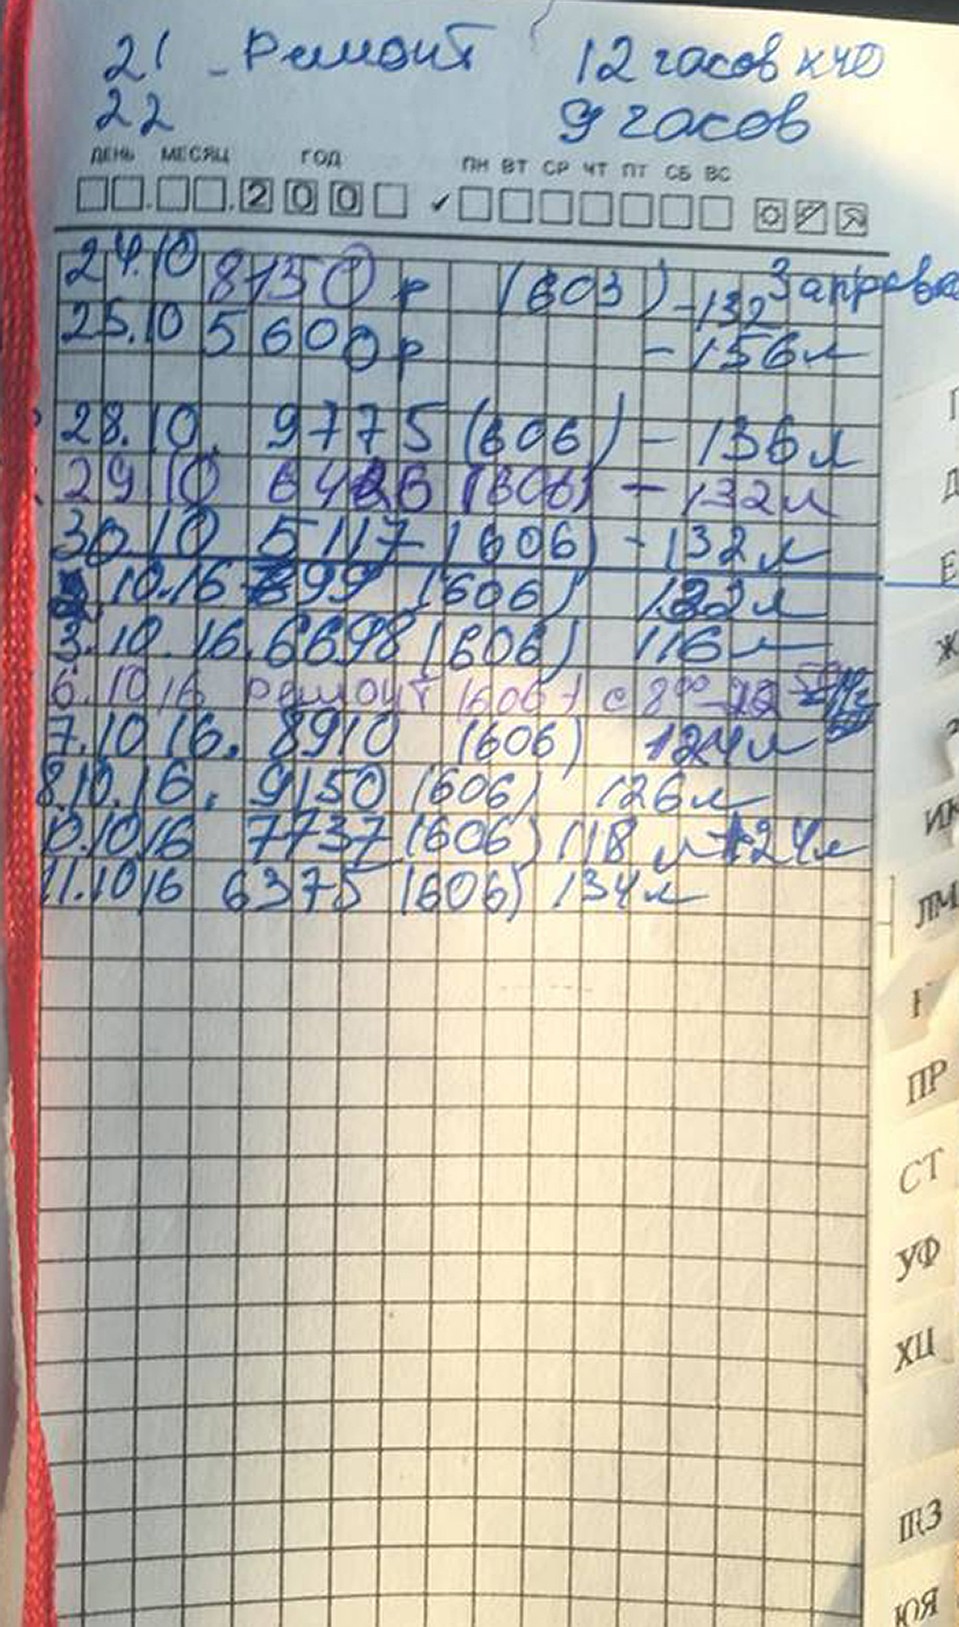 21 - Ремонт 12 часов
22 9 часов
ДЕНЬ МЕСЯЦ ГОД ПН ВТ СР ЧТ ПТ СБ ВС
200
24.10 8150 р (603) -132 Заправка
25.10 5600р - 156л
28.10. 9775 (606) - 136л
29 10 (606) - 132л
30.10 5117 (606) - 132л
10.16 899 (606) 122л
3.10.16. 6698 (606) 116л
6.10 16 Ремонт (606) с 8⁰⁰
7.10 16. 8910 (606) 124л
8.10.16. 9150 (606) 126л
10.10 16 7737 (606) 118 л +24л
11.10 16 6375 (606) 134л
Ж
ИК
ЛМ
ПР
СТ
УФ
ХЦ
ЮЯ